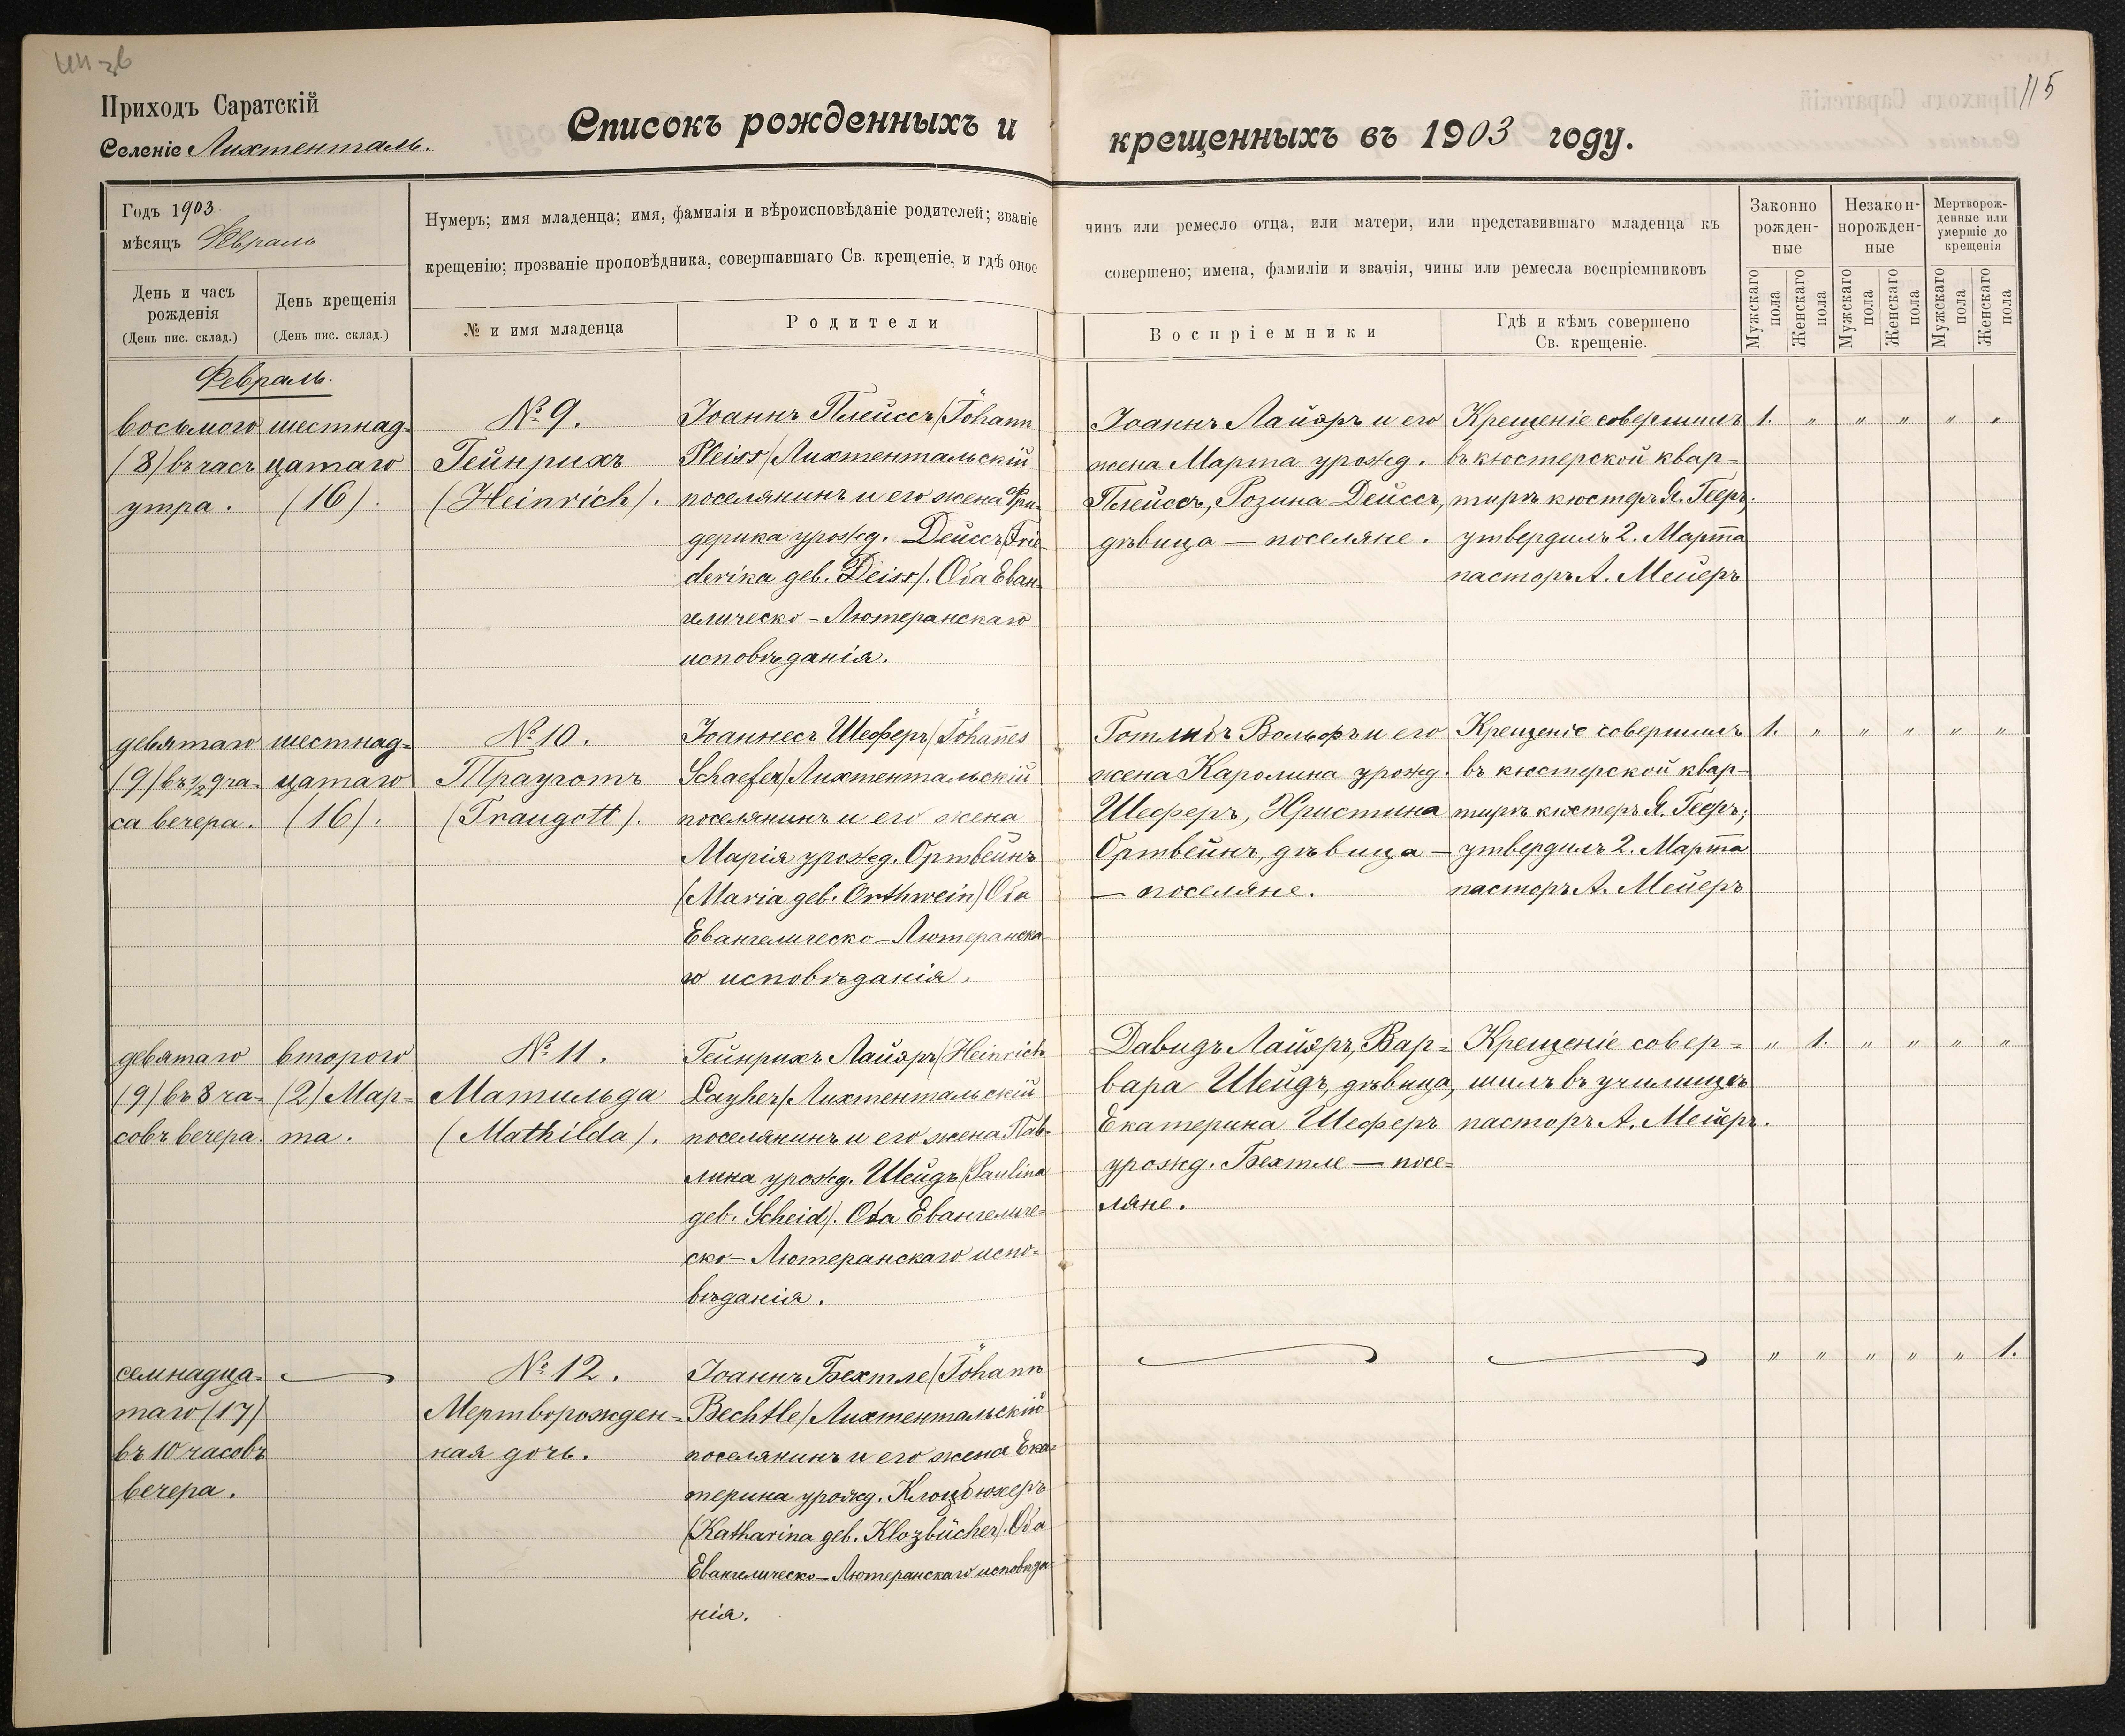 115
Приходъ Саратскій
Селеніе Лихтенталь.
Списокъ рожденныхъ и крещенныхъ въ 1903 году.
Годъ 1903.
мѣсяцъ Февраль
Нумеръ; имя младенца; имя, фамилія и вѣроисповѣданіе родителей; званіе
чинъ или ремесло отца, или матери, или представившаго младенца къ
крещенію; прозваніе проповѣдника, совершавшаго Св. крещеніе, и гдѣ оное
совершено; имена, фамиліи и званія, чины или ремесла воспріемниковъ
День и часъ
рожденія
(День пис. склад.)
День крещенія
(День пис. склад.)
№ и имя младенца
Родители
Воспріемники
Гдѣ и кѣмъ совершено
Св. крещеніе.
Законно
рожден-
ные
Незакон-
норожден-
ные
Мертворож-
денные или
умершіе до
крещенія
Мужскаго
пола
Женскаго
пола
Мужскаго
пола
Женскаго
пола
Мужскаго
пола
Женскаго
пола
Февраль.
восьмого
(8) въ часъ
утра.
шестнад-
цатаго
(16).
№ 9.
Гейнрихъ
(Heinrich).
Іоаннъ Плейссъ (Johann
Pleiss) Лихтентальскій
поселянинъ и его жена Фри-
дерика урожд. Дейссъ (Frie-
derika geb. Deiss). Оба Еван-
гелическо-Лютеранскаго
исповѣданія.
Іоаннъ Лайэръ и его
жена Марта урожд.
Плейссъ, Розина Дейссъ,
дѣвица — поселяне.
Крещеніе совершилъ
въ кюстерской квар-
тирѣ кюстеръ Я. Гееръ;
утвердилъ 2. Марта
пасторъ А. Мейеръ
1. " " " " "
девятаго
(9) въ ½ 9 ча-
са вечера.
шестнад-
цатаго
(16).
№ 10.
Трауготъ
(Traugott).
Іоаннесъ Шеферъ (Johannes
Schaefer) Лихтентальскій
поселянинъ и его жена
Марія урожд. Ортвейнъ
(Maria geb. Orthwein) Оба
Евангелическо-Лютеранска-
го исповѣданія.
Готлибъ Вольфъ и его
жена Каролина урожд.
Шеферъ, Христина
Ортвейнъ, дѣвица —
— поселяне.
Крещеніе совершилъ
въ кюстерской квар-
тирѣ кюстеръ Я. Гееръ;
утвердилъ 2. Марта
пасторъ А. Мейеръ
1. " " " " "
девятаго
(9) въ 8 ча-
совъ вечера.
второго
(2) Мар-
та.
№ 11.
Матильда
(Mathilda).
Гейнрихъ Лайэръ (Heinrich
Layher) Лихтентальскій
поселянинъ и его жена Пав-
лина урожд. Шейдъ (Paulina
geb. Scheid). Оба Евангеличе-
ско-Лютеранскаго испо-
вѣданія.
Давидъ Лайэръ, Вар-
вара Шейдъ, дѣвица,
Екатерина Шеферъ
урожд. Бехтле — посе-
ляне.
Крещеніе совер-
шилъ въ училищѣ
пасторъ А. Мейеръ.
" 1. " " " "
семнадца-
таго (17)
въ 10 часовъ
вечера.
№ 12.
Мертворожден-
ная дочь.
Іоаннъ Бехтле (Johann
Bechtle) Лихтентальскій
поселянинъ и его жена Ека-
терина урожд. Клоцбюхеръ
(Katharina geb. Klozbücher). Оба
Евангелическо-Лютеранскаго исповѣда-
нія.
" " " " " 1.